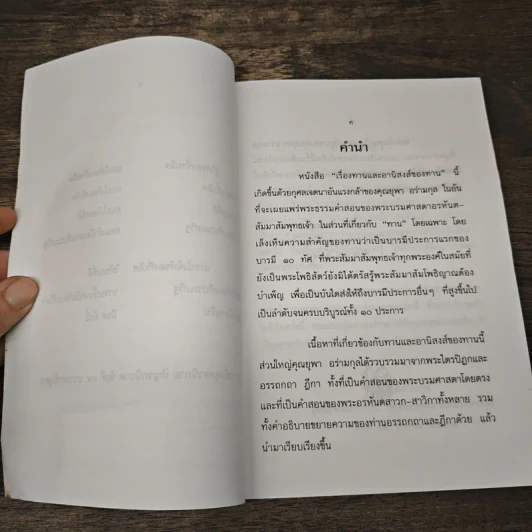 ๓
คำนำ
หนังสือ “เรื่องทานและอานิสงส์ของทาน” นี้
เกิดขึ้นด้วยกุศลเจตนาอันแรงกล้าของคุณยุพา อร่ามกุล ในอัน
ที่จะเผยแพร่พระธรรมคำสอนของพระบรมศาสดาอรหันต-
สัมมาสัมพุทธเจ้า ในส่วนที่เกี่ยวกับ “ทาน” โดยเฉพาะ โดย
เล็งเห็นความสำคัญของทานว่าเป็นบารมีประการแรกของ
บารมี ๑๐ ทัศ ที่พระสัมมาสัมพุทธเจ้าทุกพระองค์ในสมัยที่
ยังเป็นพระโพธิสัตว์ยังมิได้ตรัสรู้พระสัมมาสัมโพธิญาณต้อง
บำเพ็ญ เพื่อเป็นบันไดส่งให้ถึงบารมีประการอื่นๆ ที่สูงขึ้นไป
เป็นลำดับจนครบบริบูรณ์ทั้ง ๑๐ ประการ
เนื้อหาที่เกี่ยวข้องกับทานและอานิสงส์ของทานนี้
ส่วนใหญ่คุณยุพา อร่ามกุลได้รวบรวมมาจากพระไตรปิฎกและ
อรรถกถา ฎีกา ทั้งที่เป็นคำสอนของพระบรมศาสดาโดยตรง
และที่เป็นคำสอนของพระอรหันตสาวก-สาวิกาทั้งหลาย รวม
ทั้งคำอธิบายขยายความของท่านอรรถกถาและฎีกาด้วย แล้ว
นำมาเรียบเรียงขึ้น